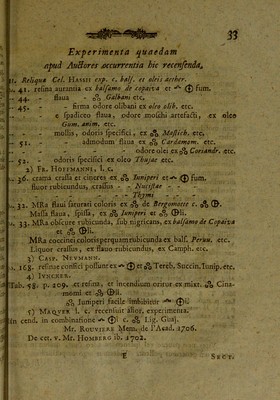 33
Experimenta quaedam
apud Auctores occurrentia hic recensenda,
Reliqua Cel. HASSII exp. c. bals. et oleis aether.
41. resina aurantia ex balsamo de copaiva et fum.
44. - flava - Galbani etc.
45. - - firma odore olibani ex oleo olib. etc.
- e spadiceo flava, odore moschi artefacti, ex oleo
Gum. anim. etc.
- mollis, odoris specifici, ex Mastich. etc.
51. - admodum flava ex Cardamom. etc.
- - odore olei ex Coriandr. etc.
52. - odoris specifici ex oleo Thujae etc.
2) FR. HOFFMANNI, l. c.
36. crama crassa et cineres ex Iuniperi et fum.
fluor rubicundus, crassus - - Nucistae - -
- - - Thymi
32. MRa flaui saturati coloris ex de Bergamotte c.
Massa flaua, spissa, ex Iuniperi et li.
33. MRa obscure rubicunda, sub nigricans, ex balsamo de Copaiva
et li.
MRa coccinei coloris perquam rubicunda ex bals. Peruv. etc.
Liquor crassus, ex flauo-rubicundus, ex Camph. etc.
3) CASP. NEVMANN.
168. resinae consici possunt ex et Tereb. Succin. Iunip. etc.
4) IVNCKER.
Tab. 58. p. 209. et resina, et incendium oritur ex mixt. Cina-
momi et li.
Iuniperi facile imbibitur
5) MAQVER l. c. recensuit allor. experimenta.
in cend. in combinatione c. Lig. Guaj.
Mr. ROUVIERE Mem. de l'Acad. 1706.
De cet. v. Mr. HOMBERG ib. 1702.
E SECT.